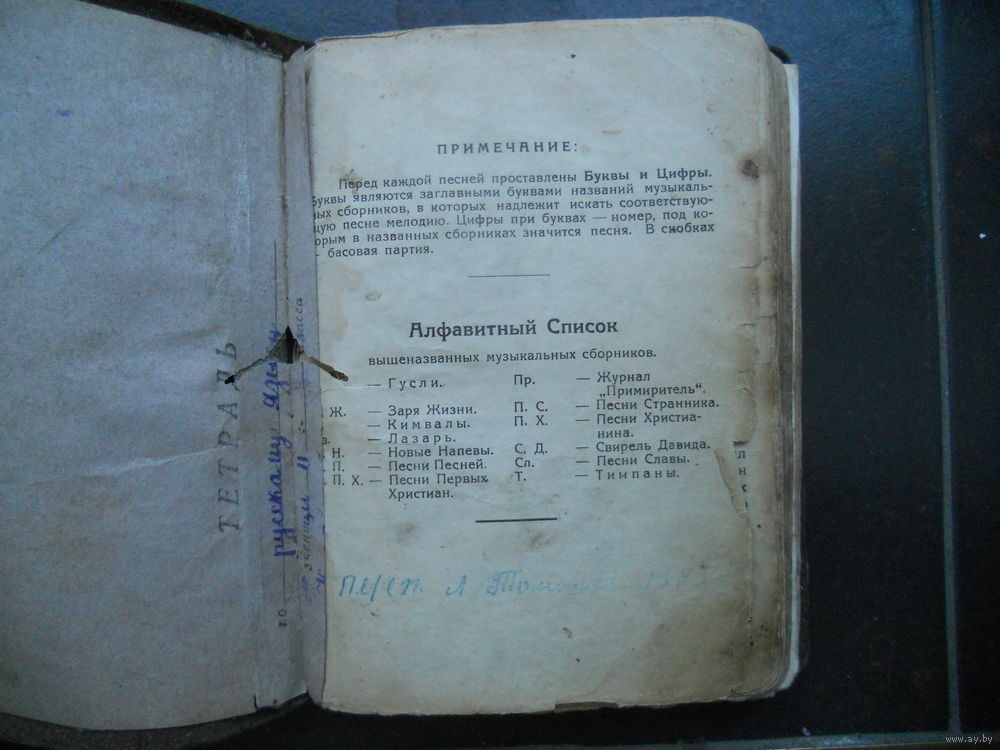 ПРИМЕЧАНИЕ:
Перед каждой песней проставлены Буквы и Цифры.
Буквы являются заглавными буквами названий музыкаль-
ных сборников, в которых надлежит искать соответствую-
щую песне мелодию. Цифры при буквах — номер, под ко-
орым в названных сборниках значится песня. В скобках
— басовая партия.
Алфавитный Список
вышеназванных музыкальных сборников.
— Гусли.
Ж. — Заря Жизни.
— Кимвалы.
з. — Лазарь.
Н. — Новые Напевы.
П. — Песни Песней.
П. Х. — Песни Первых
Христиан.
Пр. — Журнал
„Примиритель“.
П. С. — Песни Странника.
П. Х. — Песни Христиа-
нина.
С. Д. — Свирель Давида.
Сл. — Песни Славы.
Т. — Тимпаны.
ТЕТРАДЬ
по русскому языку
класса
www.ay.by